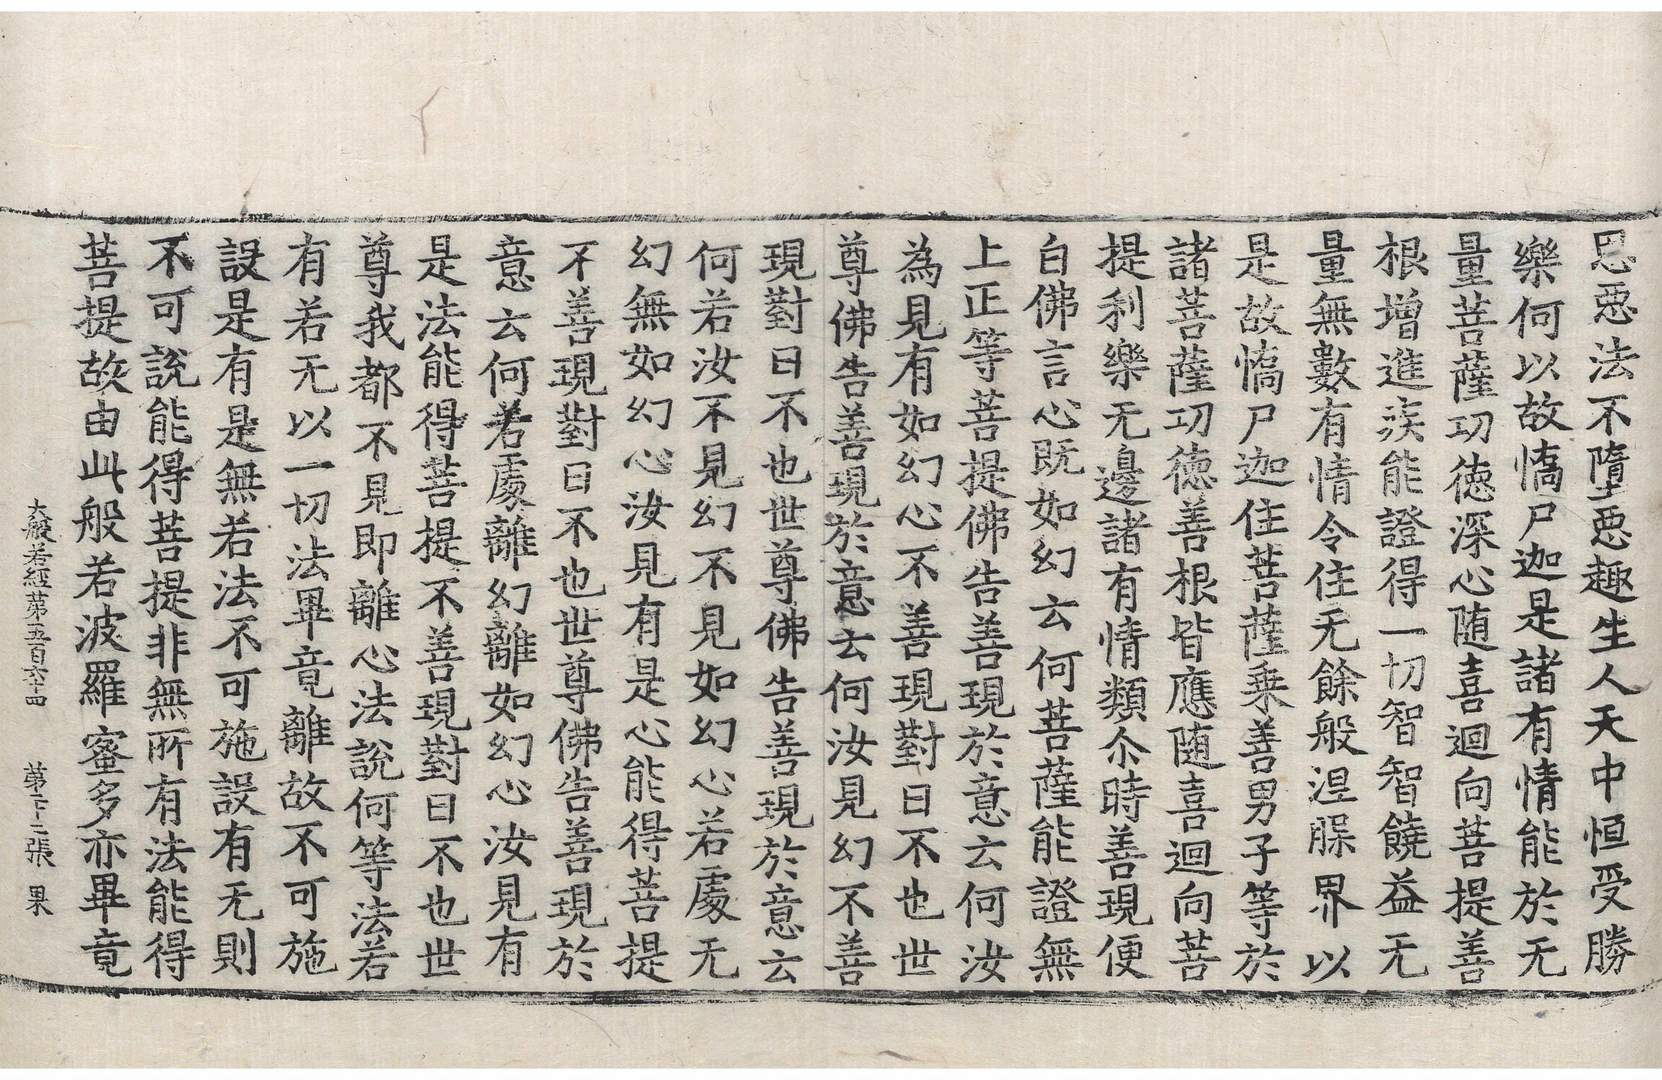 思惡法不墮惡趣生人天中恒受勝
樂何以故憍尸迦是諸有情能於无
量菩薩功德深心随喜迴向菩提善
根增進疾能證得一切智智饒益无
量無數有情令住无餘般涅槃界以
是故憍尸迦住菩薩乗善男子等於
諸菩薩功德善根皆應随喜迴向菩
提利樂无邊諸有情類尒時善現便
白佛言心既如幻云何菩薩能證無
上正等菩提佛告善現於意云何汝
為見有如幻心不善現對曰不也世
尊佛告善現於意云何汝見幻不善
現對曰不也世尊佛告善現於意云
何若汝不見幻不見如幻心若處无
幻無如幻心汝見有是心能得菩提
不善現對曰不也世尊佛告善現於
意云何若處離幻離如幻心汝見有
是法能得菩提不善現對曰不也世
尊我都不見即離心法說何等法若
有若无以一切法畢竟離故不可施
設是有是無若法不可施設有无則
不可說能得菩提非無所有法能得
菩提故由此般若波羅蜜多亦畢竟
大般若經苐五百六十四 苐二十二張 果